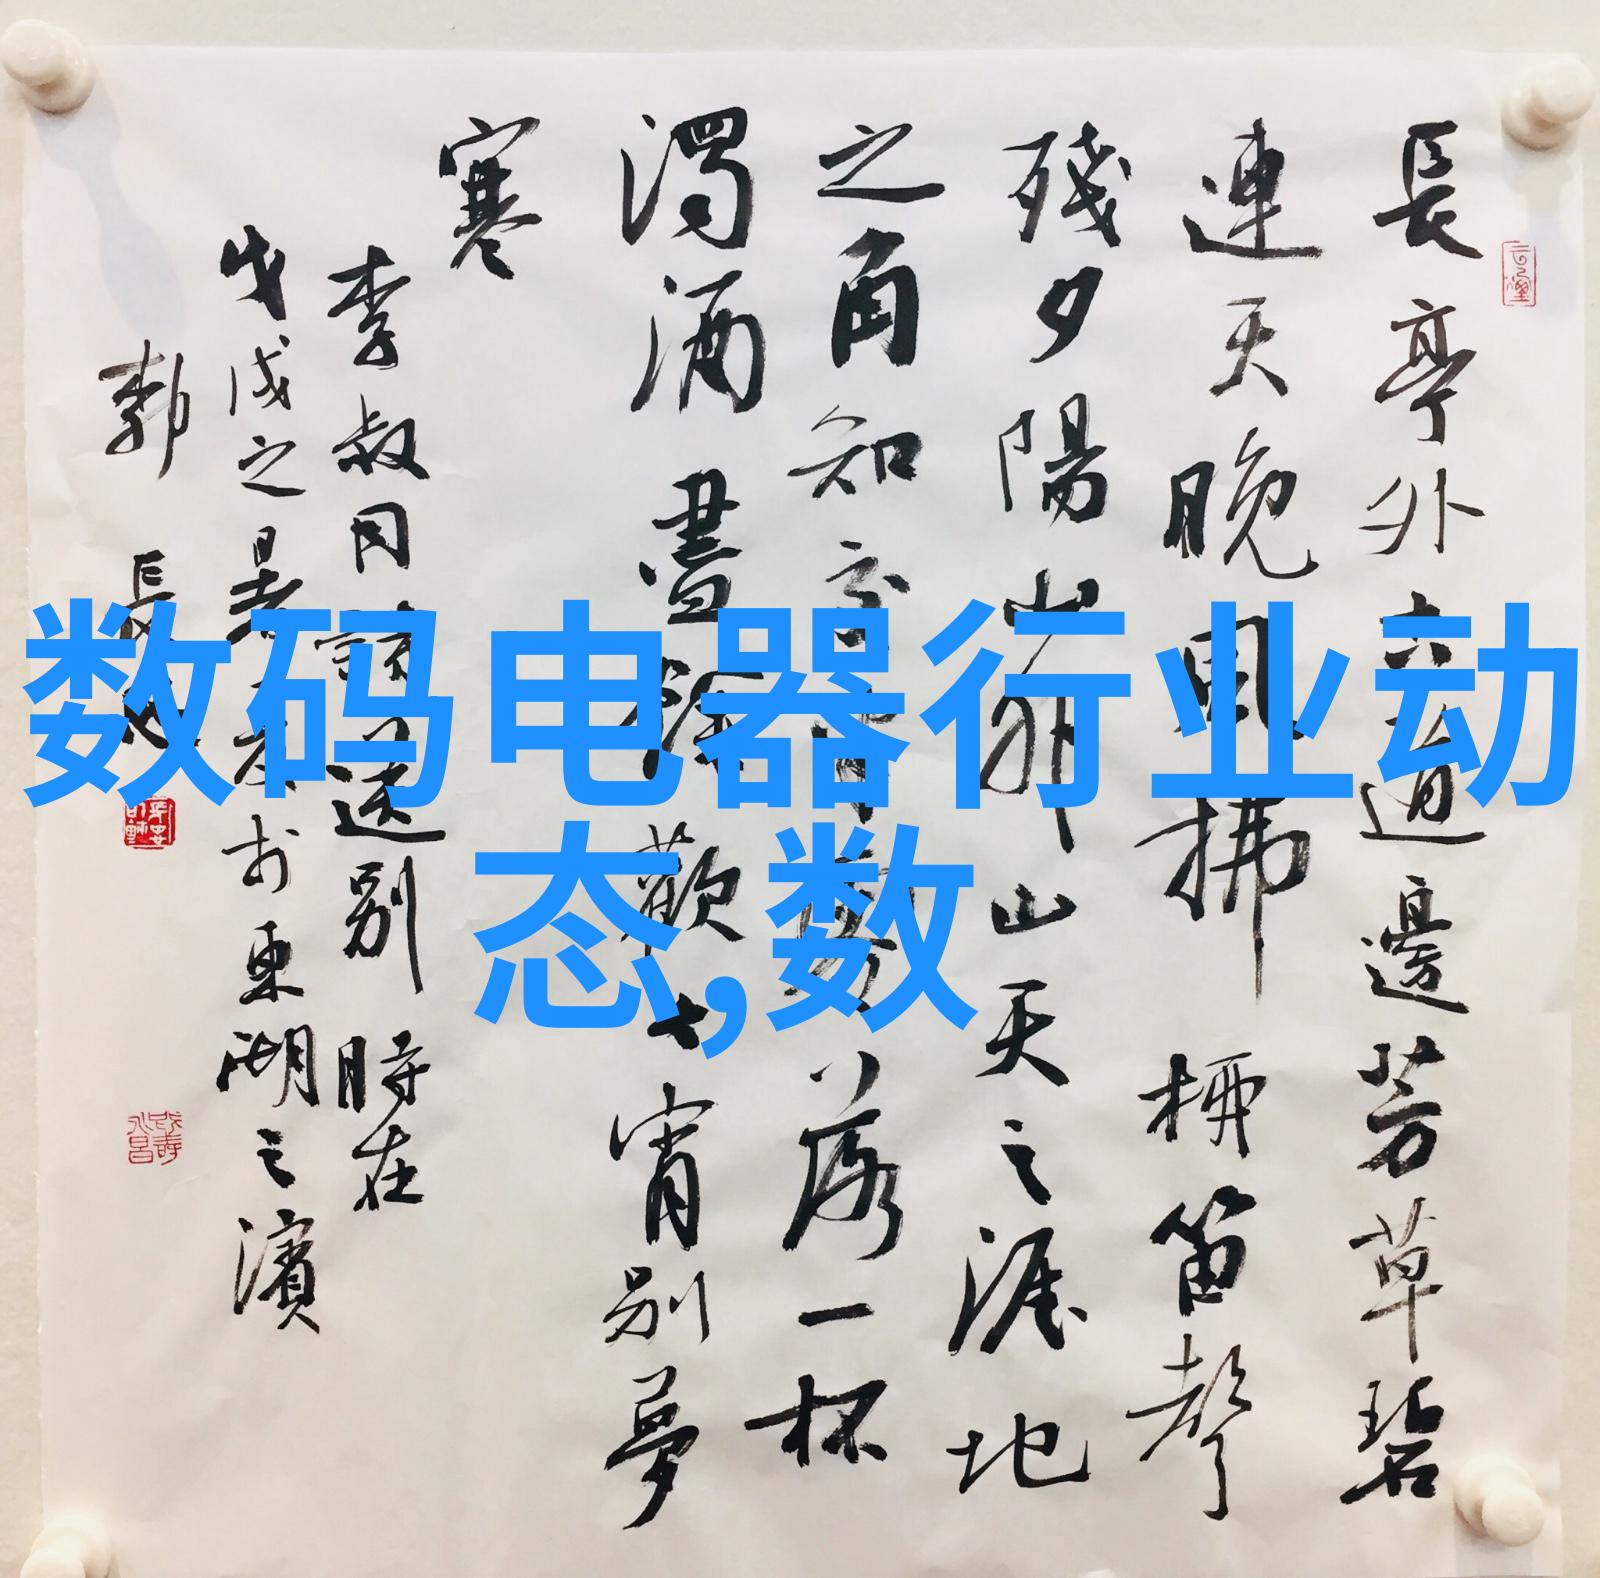 数码电器行业动
态,数
長亭外古道邊芳草碧
連天晚風拂柳笛聲
殘夕陽山外山天之涯地
之角知交半零落一杯
濁酒盡餘歡今宵別夢
寒
李叔同詞送別時在
戊戌之於東湖之濱
長